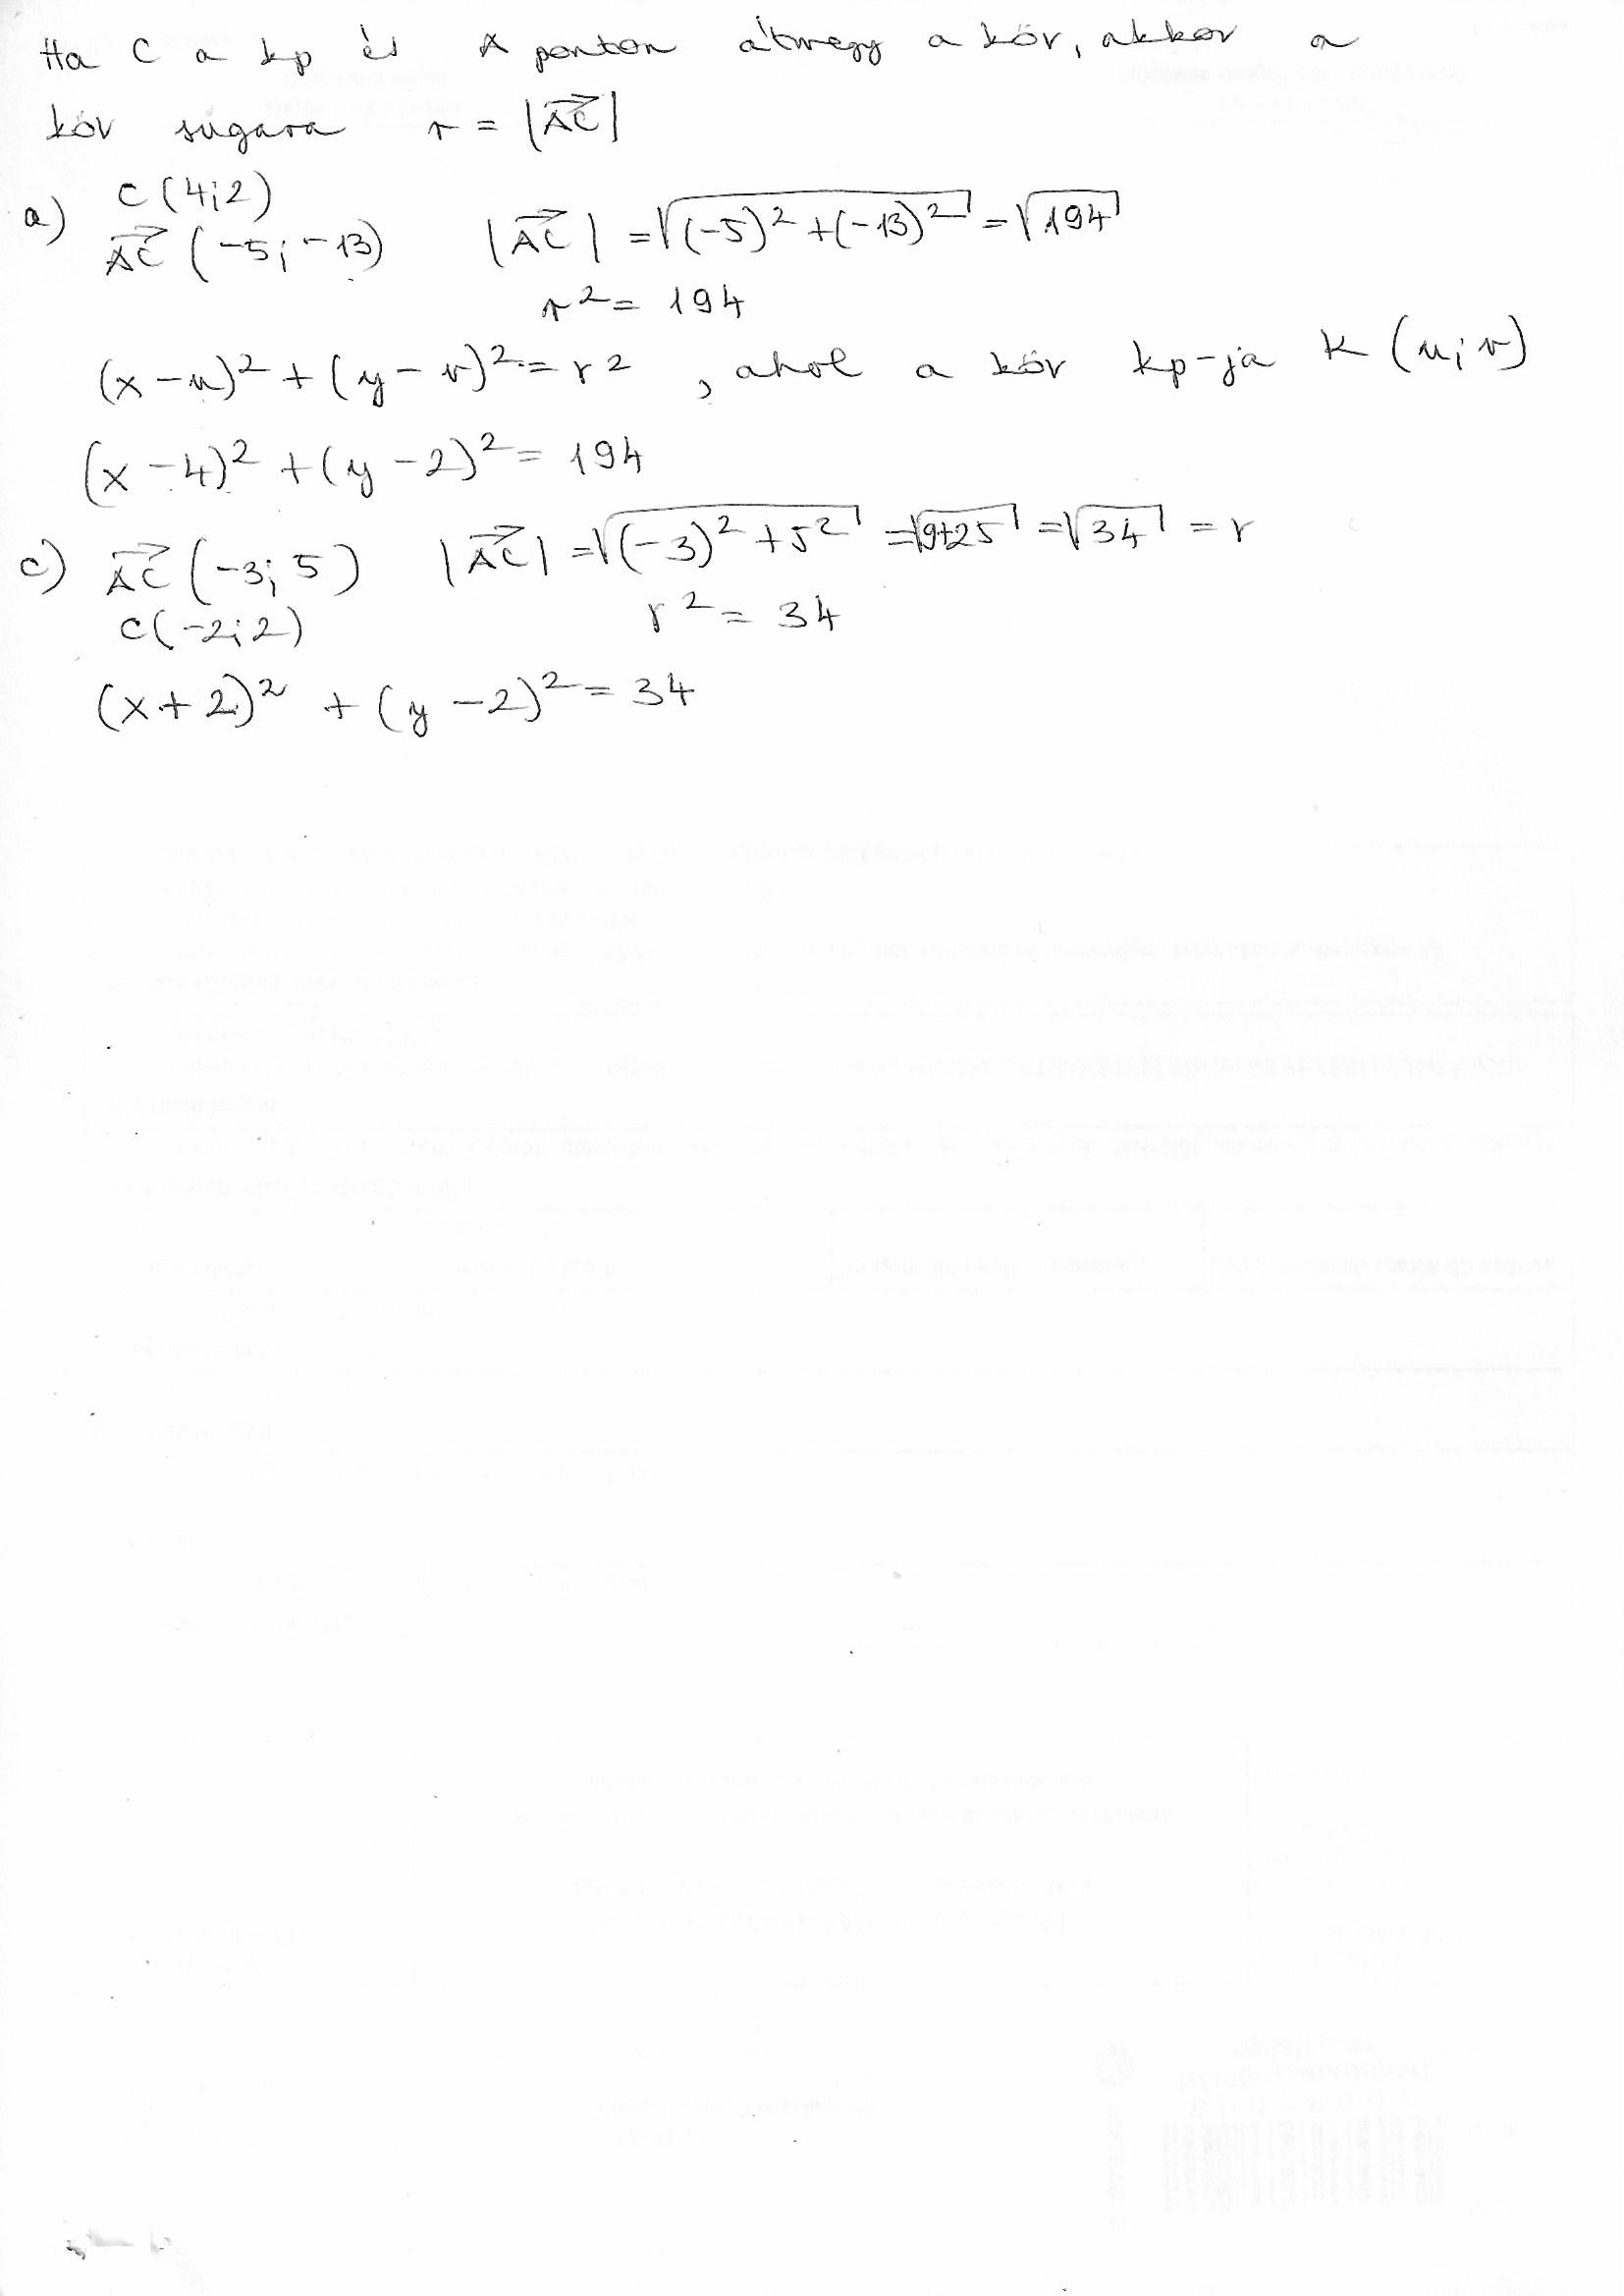 Ha C a kp és A ponton átmegy a kör, akkor a
kör sugara r = |AC→|
a) C(4;2)
AC→ (-5; -13) |AC→| = √((-5)² + (-13)²) = √194
r² = 194
(x - u)² + (y - v)² = r² , ahol a kör kp-ja K (u; v)
(x - 4)² + (y - 2)² = 194
c) AC→ (-3; 5) |AC→| = √((-3)² + 5²) = √(9+25) = √34 = r
C(-2; 2) r² = 34
(x + 2)² + (y - 2)² = 34